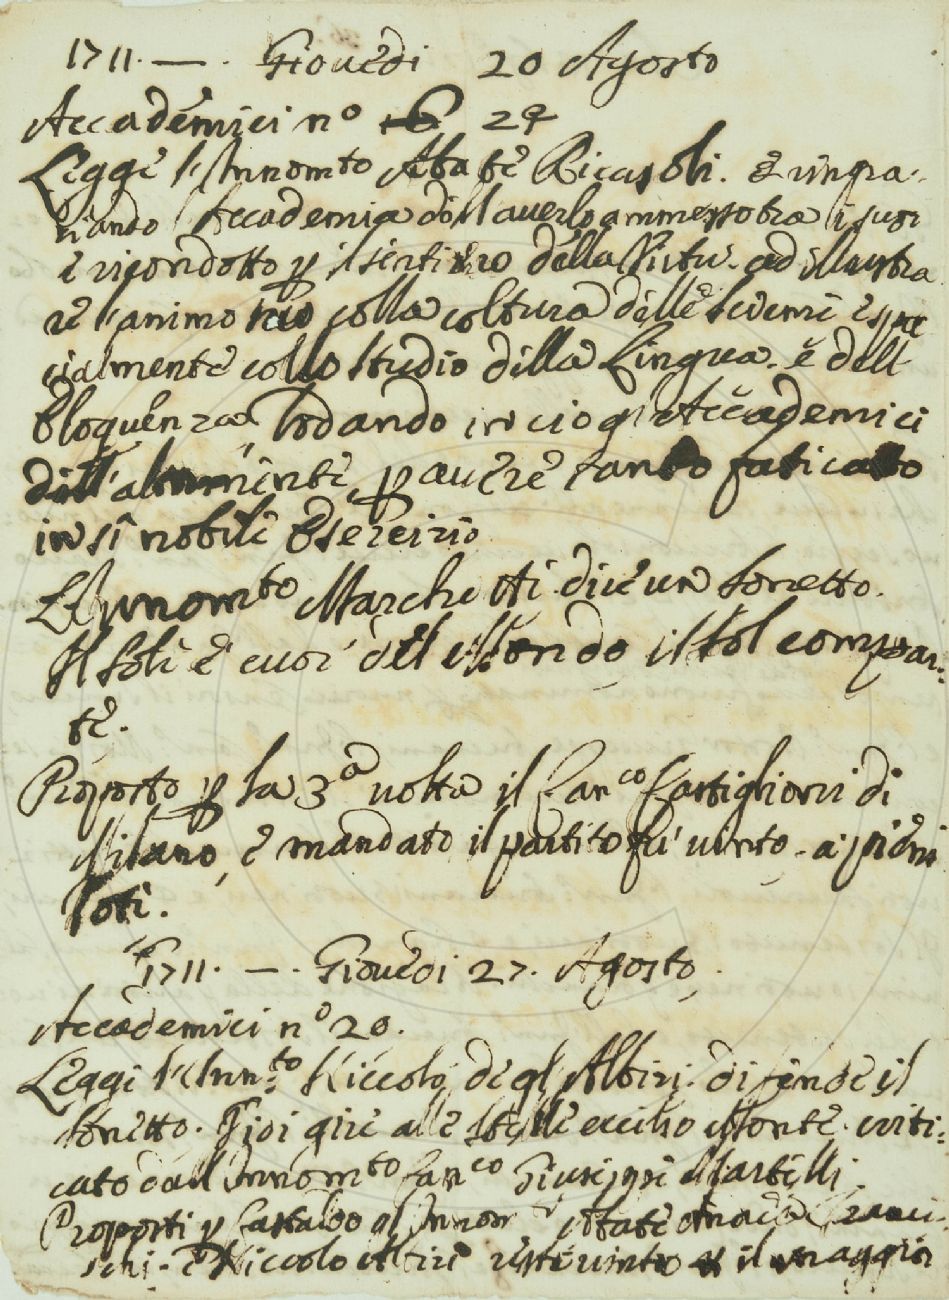 1711. — . Giouedi 20 Agosto
Accademici n° 29
Legge l'Innom.to Abate Ricasoli. e ringra-
ziando l'Accademia dell'auerlo ammesso tra i suoi
e ricondotto p il sentiero della Virtu. ad illustra
re l'animo suo colla coltura delle scienze e spe
cialmente collo studio della Lingua. e dell
Eloquenza, lodando in cio gl'Accademici
p auere tanto faticato
in sì nobile Esercizio
L'Innom.to Marchetti dice un sonetto.
Il sole è cuor del Mondo, il sol compar-
te.
Proposto p la 3.a uolta il Fran.co Castiglioni di
Milano, e mandato il partito fù uinto a pieni
Voti.
1711. — . Giouedi 27. Agosto.
Accademici n.° 20.
Legge l'Inn.to Niccolò degl'Albizi. difende il
sonetto. Gioi gire alle stelle eccelso Monte. criti-
cato dall'Innom.to Fran.co Giuseppe Martelli
Proposti p Castaldo gl'Innom.i Abate Franc-
schi. e Niccolo Albizi resto uinto il maggior